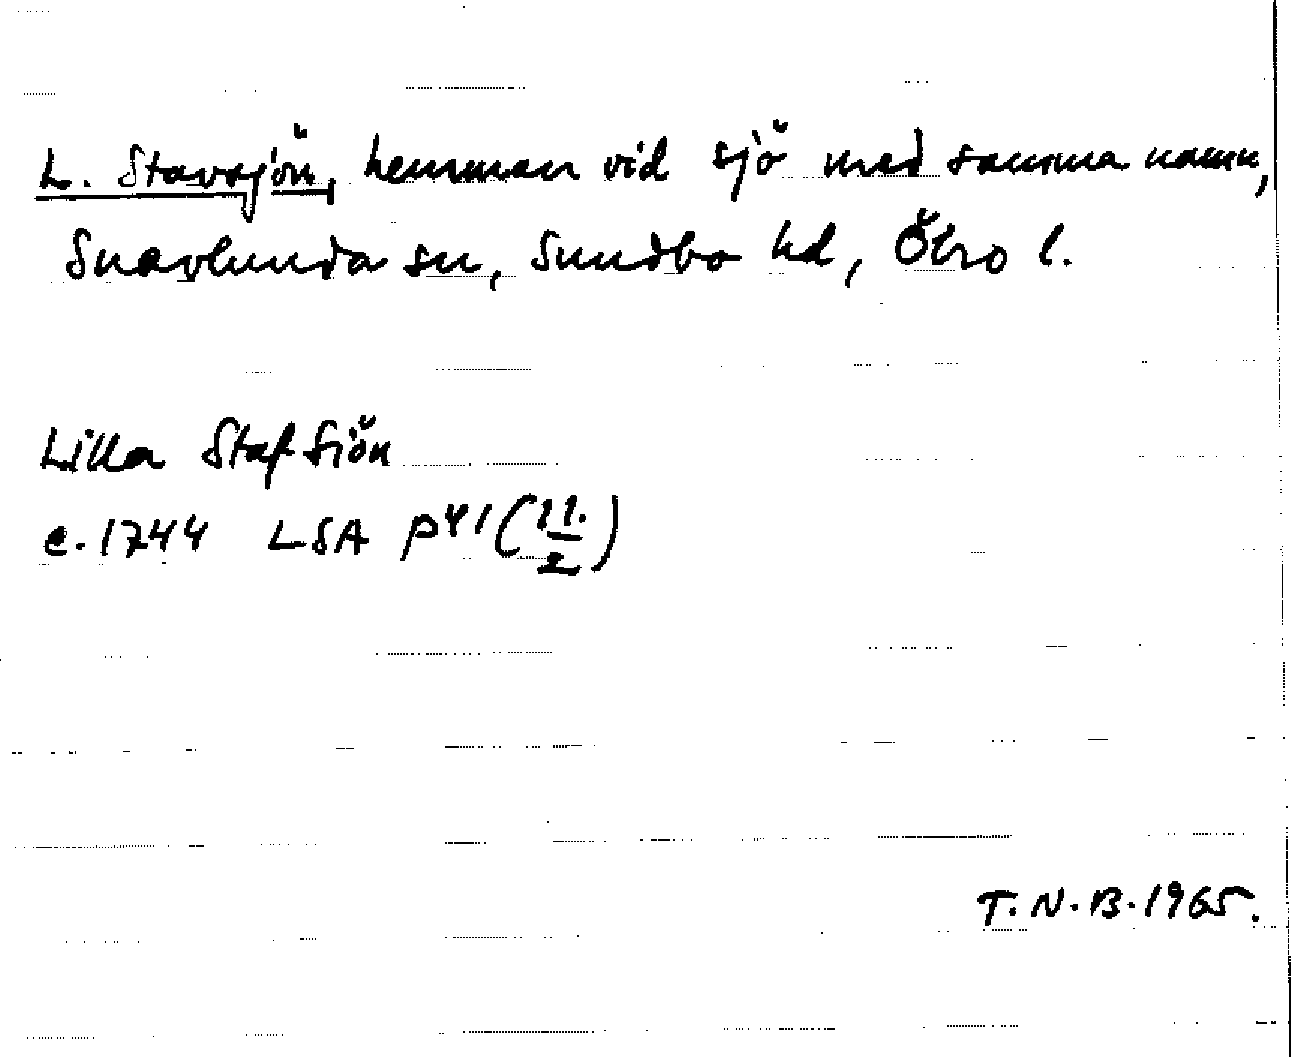 L. Stavsjön, hemman vid sjö med samma namn,
Snavlunda sn, Sundbo hd, Öbro l.
Lilla Stafsiön
c. 1744 LSA P41 (11./2)
T. N. B. 1965.